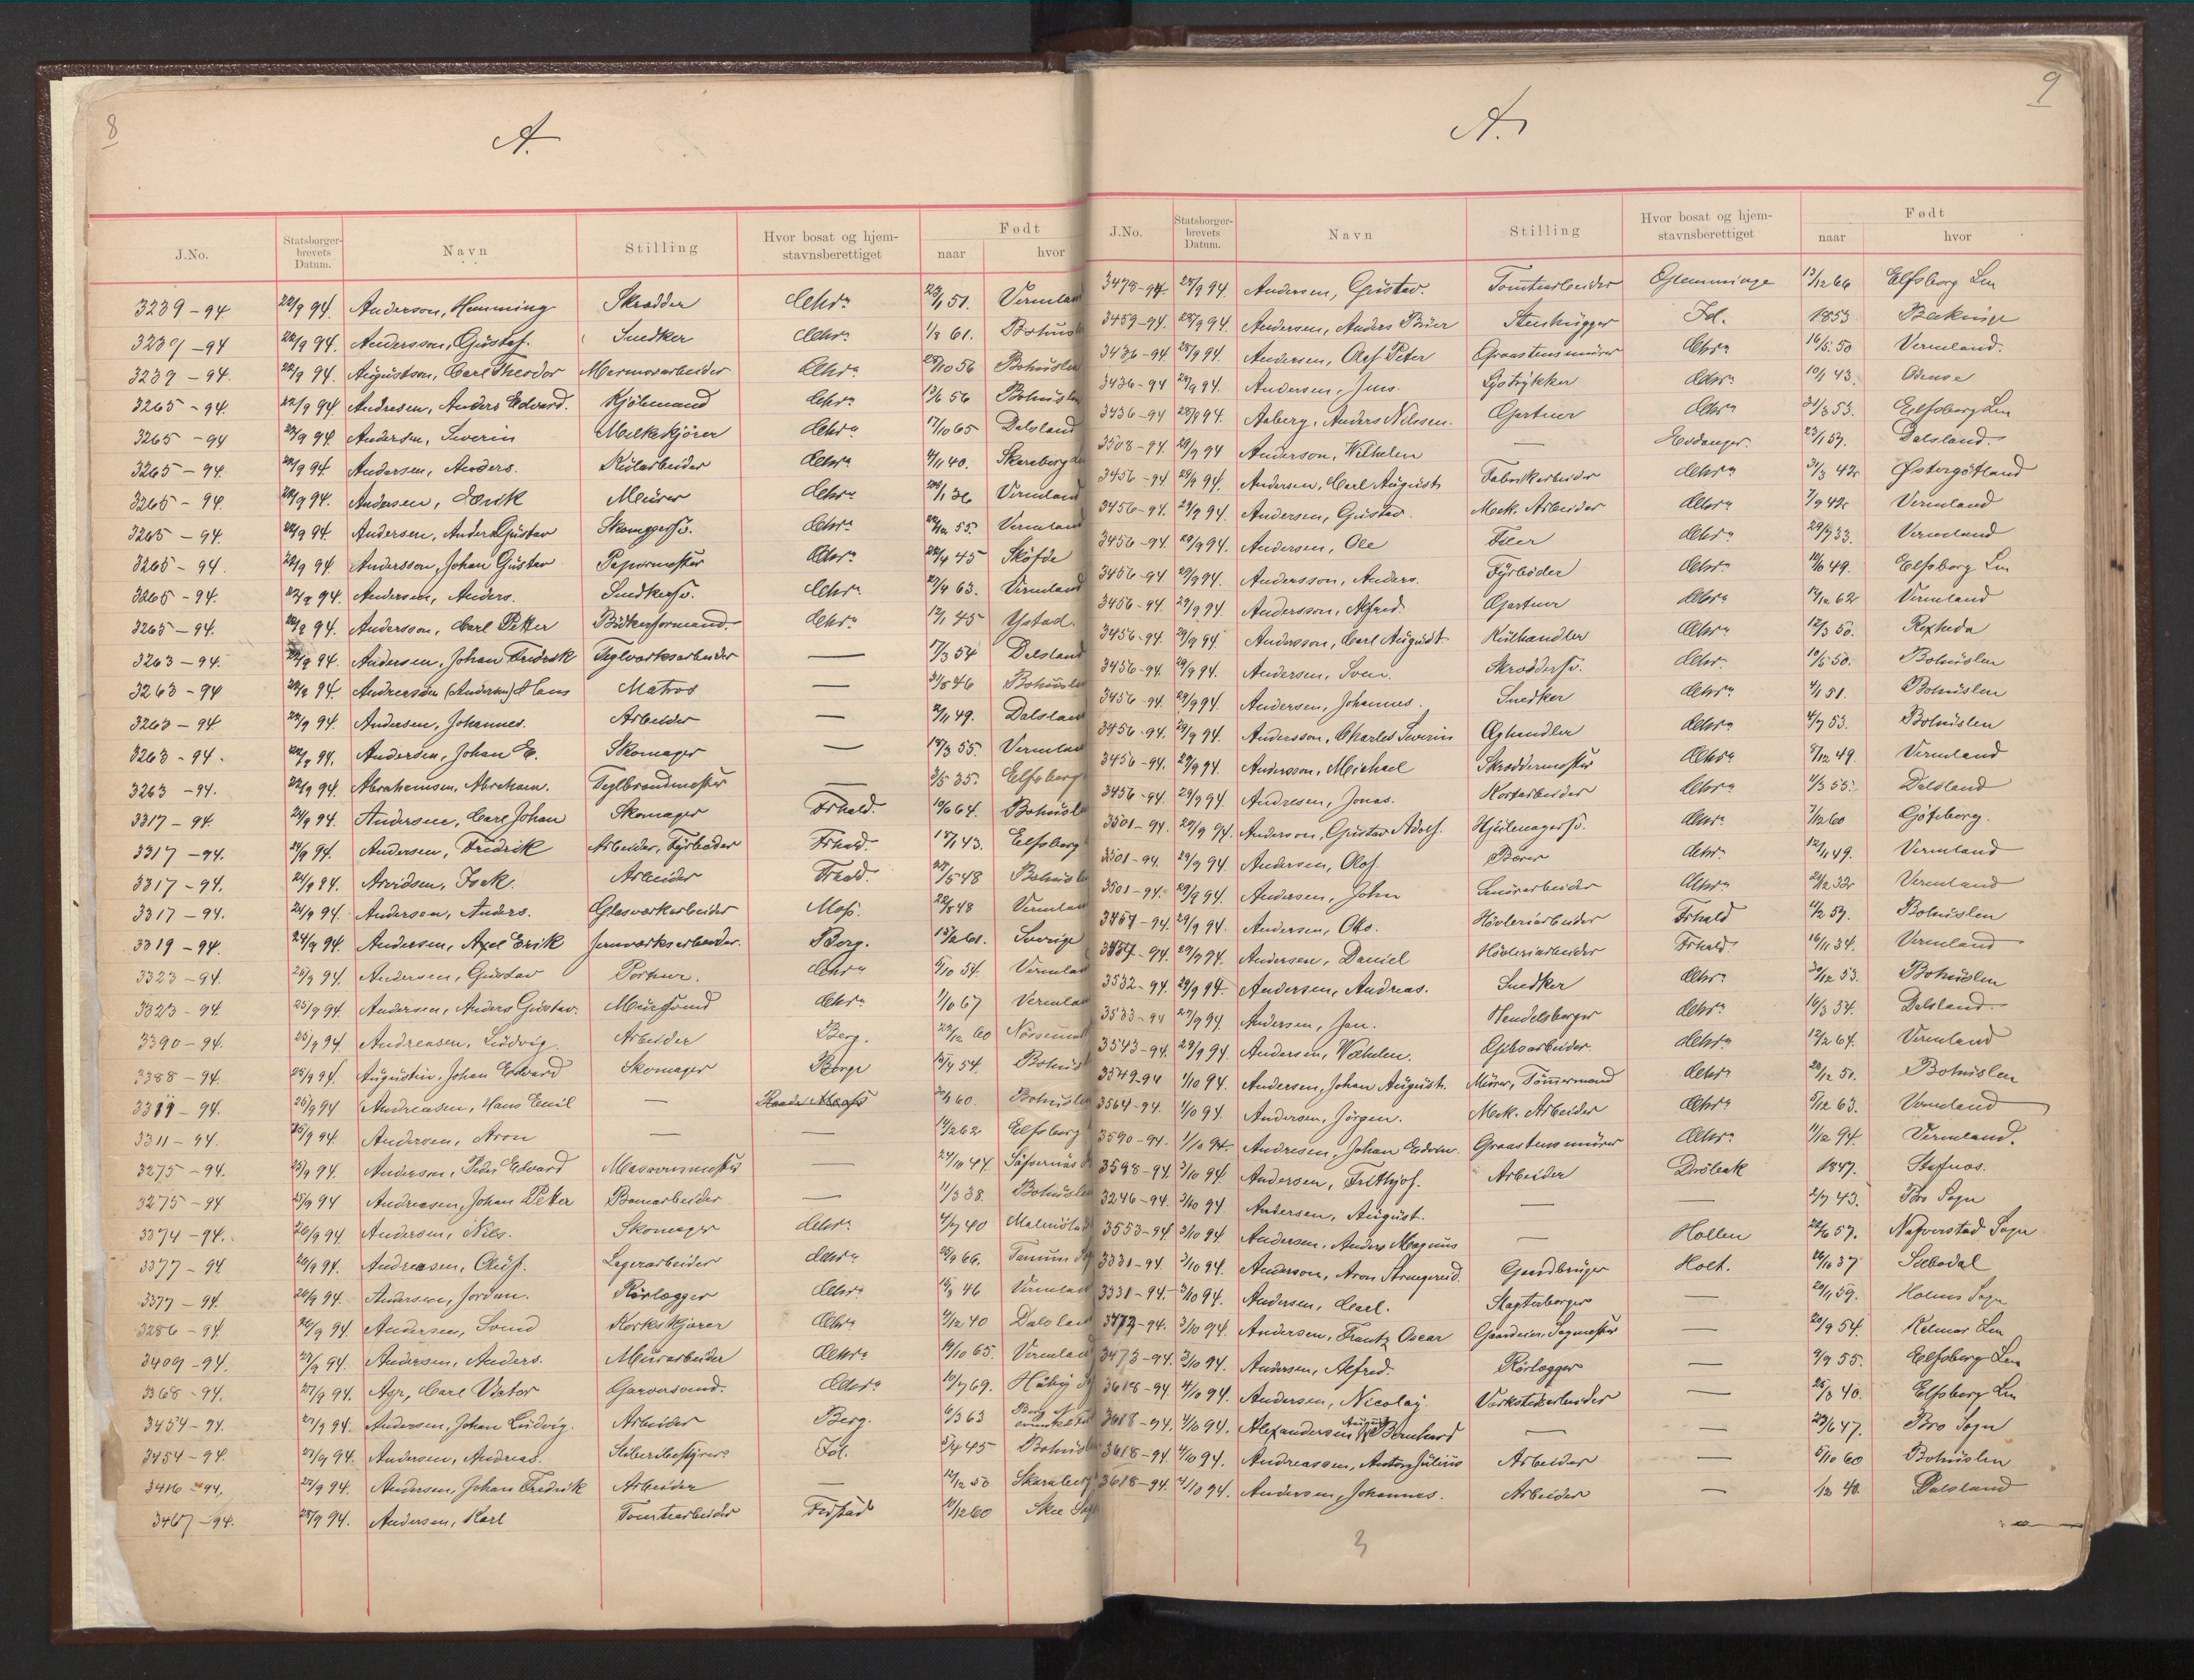 8
A.
J.No. Statsborger-brevets Datum. Navn Stilling Hvor bosat og hjem-stavnsberettiget Født naar hvor
3239-94 22/9 94. Anderson, Hemming Skrædder Chra 23/1 51. Vermland
3239-94 22/9 94. Andersson, Gustaf. Snedker Chra 1/8 61. Bohusl
3239-94. 22/9 94. Augustson, Carl Theodor Marmorarbeider Chra 25/10 56 Bohuslen
3265-94. 22/9 94. Andresen, Anders Edvard. Kjölemand Chra 13/6 56 Bohuslen
3265-94 22/9 94. Andersen, Severin Melkekjører Chra 17/10 65 Dalsland
3265-94. 22/9 94. Andersen, Anders. Kularbeider Chra 4/11 40. Skaraborg
3265-94. 22/9 94. Andersen, Murer Chra 1 36 Vermland
3265-94. 22/9 94 Andersen, Anders Gustav Chra 55. Vermland
3265-94. 22/9 94. Andersson, Johan Gustav Papirmester Chra 45 Sköfde
3265-94. 22/9 94. Andersen, Anders. Snedkersv. Chra 63. Vermland
3265-94. 22/9 94. Andersson, Carl Petter Bödkerformand. Chra 12/1 45 Ystad.
3263-94. 22/9 94. Andersen, Johan Fredrik Teglværksarbeider — 17/3 54 Dalsland
3263-94 22/9 94. Andreassen (Andersen) Hans Matros — 31/8 46 Bohuslen
3263-94. 22/9 94. Andersen, Johannes. Arbeider — 49. Dalsland
3263-94. 22/9 94. Andersen, Johan E. Skomager — 55. Vermland
3263-94. 22/9 94. Abrahamsen, Abraham. Teglbrændmester — 3/5 35. Elfsborg
3317-94. 24/9 94. Andersen, Carl Johan Skomager Frhald. 10/6 64. Bohusl
3317-94. 24/9 94. Andersen, Fredrik Arbeider, Fyrbøder Frhald. 43. Elfsborg
3317-94. 24/9 94. Arvidsen, Isak. Arbeider Frhald. 27/5 48 Bohusl
3317-94. 24/9 94. Andersen, Anders. Glasværkarbeider Moss. 22/8 48 Vermland
3319-94. 24/9 94. Andersen, Axel Erik Jernværksarbeider. Berg. 61. Sverige
3323-94. 25/9 94. Andersen, Gustav Portner. Chra 5/10 54. Vermland
3323-94 25/9 94. Andersen, Anders Gustav. Mursvend Chra 1/10 67 Vermland
3390-94. 25/9 94 Andreasen, Ludvig. Arbeider Berg. 22/12 60
3388-94. 25/9 94. Augustin, Johan Edvard Skomager Borge 15/4 54. Bohusl
94. 25/9 94 Andreasen, Hans Emil — 60. Bohuslen
3311-94. 25/9 94. Andersen, Aron — — 14/2 62 Elfsborg
3275-94. 25/9 94. Anderson, Peder Edvard Masovnsmester — 24/10 44.
3275-94 25/9 94 Andreasen, Johan Peter Bomarbeider — 11/3 38. Bohuslen
3374-94. 26/9 94. Andersen, Nils. Skomager Chra 4/7 40 Malmö
3377-94 26/9 94. Andreasen, Oluf. Lagerarbeider Chra 25/9 66. Tanum
3377-94. 26/9 94. Andersen, Jordan. Rørlægger Chra 46 Vermland
3286-94. 26/9 94. Andersen, Svend Chra 4/12 40 Dalsland
3409-94. 27/9 94. Andersen, Anders. Murarbeider Chra 19/10 65. Vermland
3368-94. 27/9 94. Agr, Carl Victor Garversvend. Chra 10/7 69. Håby
3454-94. 27/9 94. Andersen, Johan Ludvig. Arbeider Berg. 6/3 63
3454-94. 27/9 94. Andersen, Andreas. Id. 5/4 45 Bohusl
3416-94. 27/9 94. Andersen, Johan Fredrik Arbeider — 12/12 50 Skaraborg
3467-94. 28/9 94. Andersen, Karl Tomtearbeider Frstad 10/12 60 Skee Sogn
9
A.
J.No. Statsborger-brevets Datum. Navn Stilling Hvor bosat og hjem-stavnsberettiget Født naar hvor
3478-94 28/9 94. Andersen, Gustav. Tomtearbeider Glemminge 13/12 66 Elfsborg Len
3459-94. 28/9 94. Andersen, Anders Stenhugger Id. 1853
3436-94. 28/9 94. Andersen, Olof Peter Graastensmurer Chra 16/5 50 Vermland.
3436-94 28/9 94. Andersen, Jens. Chra 10/1 43. Odense
3436-94 28/9 94. Aaberg, Anders Nilssen. Gartner Chra 31/8 53. Elfsborg Len
3508-94. 29/9 94 Anderson, Wilhelm — 23/1 57. Dalsland.
3456-94 29/9 94. Andersen, Carl August Fabrikarbeider Chra 31/3 42 Østergötland
3456-94. 29/9 94. Andersen, Gustav. Mek. Arbeider Chra 7/9 42 Vermland
3456-94. 29/9 94. Andersen, Ole Filer Chra 29/7 33. Vermland
3456-94 29/9 94. Andersson, Anders. Fyrbøder Chra 49. Elfsborg Len
3456-94. 29/9 94 Andersson, Alfred. Gartner Chra 62 Vermland
3456-94. 29/9 94. Andersson, Carl August Kulhandler Chra 12/3 50.
3456-94. 29/9 94. Andersen, Sven. Skræddersv. Chra 10/5 50. Bohuslen
3456-94. 29/9 94. Andersen, Johannes. Snedker Chra 4/1 51. Bohuslen
3456-94. 29/9 94. Andersson, Charles Severin Æghandler Chra 4/7 53. Bohuslen
3456-94. 29/9 94. Andersson, Michael Skræddermester Chra 8/12 49. Vermland
3456-94. 29/9 94. Andresen, Jonas. Kortarbeider Chra 4/3 55. Dalsland
3501-94. 29/9 94. Anderson, Gustav Adolf. Hjulmagersv. Chra 7/12 60 Göteborg.
3501-94. 29/9 94. Andersen, Olof Bærer Chra 12/11 49. Vermland
3501-94. 29/9 94. Andersen, John Chra 24/12 32 Vermland
3457-94. 29/9 94. Andersen, Otto. Høvleriarbeider Frhald 57. Bohuslen
3457-94. 29/9 94. Andersen, Daniel Høvleriarbeider Frhald 16/11 34. Vermland
3532-94. 29/9 94. Andersen, Andreas. Snedker Chra 30/12 53. Bohuslen
3533-94 29/9 94. Andersen, Jan. Handelsborger Chra 16/3 34. Dalsland
3543-94. 29/9 94. Andersen, Wilhelm. Gibsarbeider. Chra 12/2 64. Vermland
3549-94 1/10 94. Andersen, Johan August. Murer, Tömmermand Chra 20/12 51. Bohuslen
3564-94. 1/10 94. Andersen, Jörgen. Mek. Arbeider Chra 5/12 63. Vermland
3590-94. 1/10 94. Andresen, Johan Edvin. Graastensmurer Chra 11/12 94. Vermland.
3598-94. 3/10 94. Andersen, Frithjof. Arbeider Drøbak 1847.
3246-94. 3/10 94 Andersen, August. — — 2/7 43. Bro Sogn
3553-94 3/10 94 Andersen, Anders Magnus — Hollen 57. Sogn
3331-94. 3/10 94. Anderson, Aron Gaardbruger Holt. 37
3331-94. 3/10 94. Andersen, Carl. Slagterborger — 59. Holms Sogn
94. 3/10 94. Andersen, Frantz Oscar Gaardeier, Sagmester — 22/9 54. Kalmar Len
3473-94. 3/10 94. Andersen, Alfred. Rørlægger — 9/9 55. Elfsborg Len
3618-94 4/10 94. Andersen, Nicolaj. Værkstedarbeider — 25/3 40. Elfsborg Len
3618-94. 4/10 94. Alexandersen, August Bernhard — — 23/6 47. Bro Sogn
3618-94 4/10 94. Andreassen, Anton Julius Arbeider — 5/10 60 Bohuslen
3618-94. 4/10 94. Andersen, Johannes. Arbeider — 40. Dalsland
3